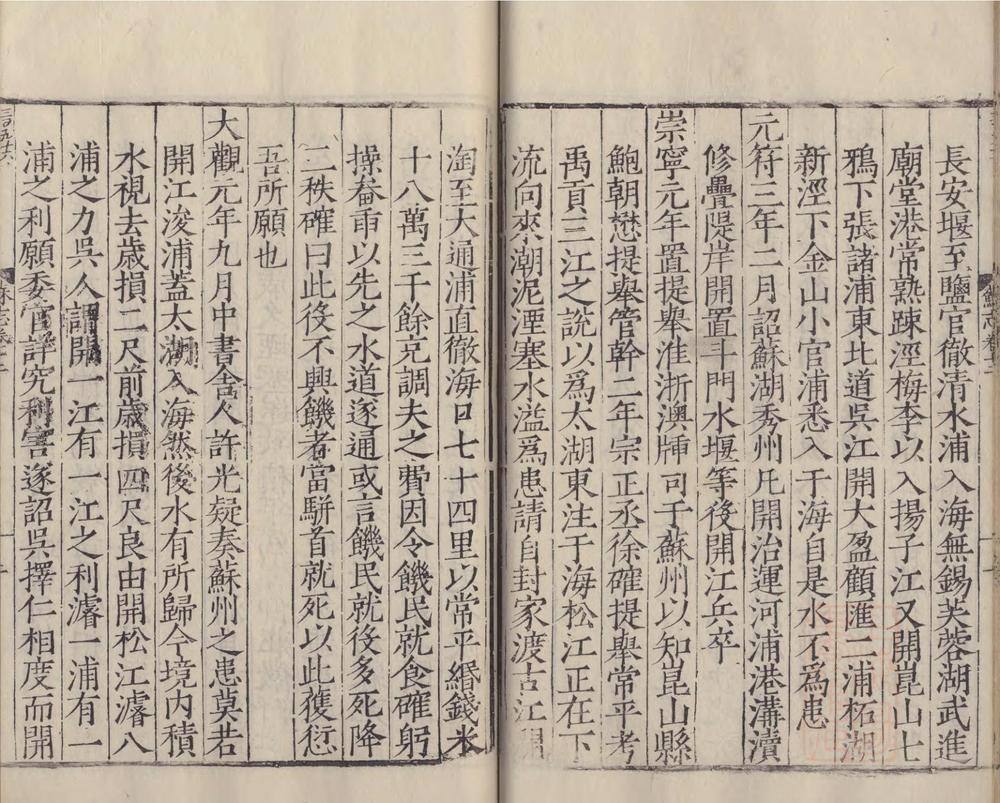 長安堰至鹽官徹清水浦入海無錫芙蓉湖武進
廟堂港常熟踈涇梅李以入揚子江又開崑山七
鴉下張諸浦東北道吳江開大盈顧滙二浦柘湖
新涇下金山小官浦悉入于海自是水不爲患
元符三年二月詔蘇湖秀州凡開治運河浦港溝瀆
修疊隄岸開置斗門水堰等後開江兵卒
崇寧元年置提舉淮浙澳牐司于蘇州以知崑山縣
鮑朝懋提舉管幹二年宗正丞徐確提舉常平考
禹貢三江之說以爲太湖東注于海松江正在下
流向來潮泥湮塞水溢爲患請自封家渡古江開
淘至大通浦直徹海口七十四里以常平緡錢米
十八萬三千餘充調夫之費因令饑民就食確躬
操畚臿以先之水道遂通或言饑民就役多死降
二秩確曰此役不興饑者當駢首就死以此獲愆
吾所願也
大觀元年九月中書舍人許光疑奏蘇州之患莫若
開江浚浦蓋太湖入海然後水有所歸今境内積
水視去歲損二尺前歲損四尺良由開松江濬八
浦之力吳人謂開一江有一江之利濬一浦有一
浦之利願委官詳究利害遂詔吳擇仁相度而開